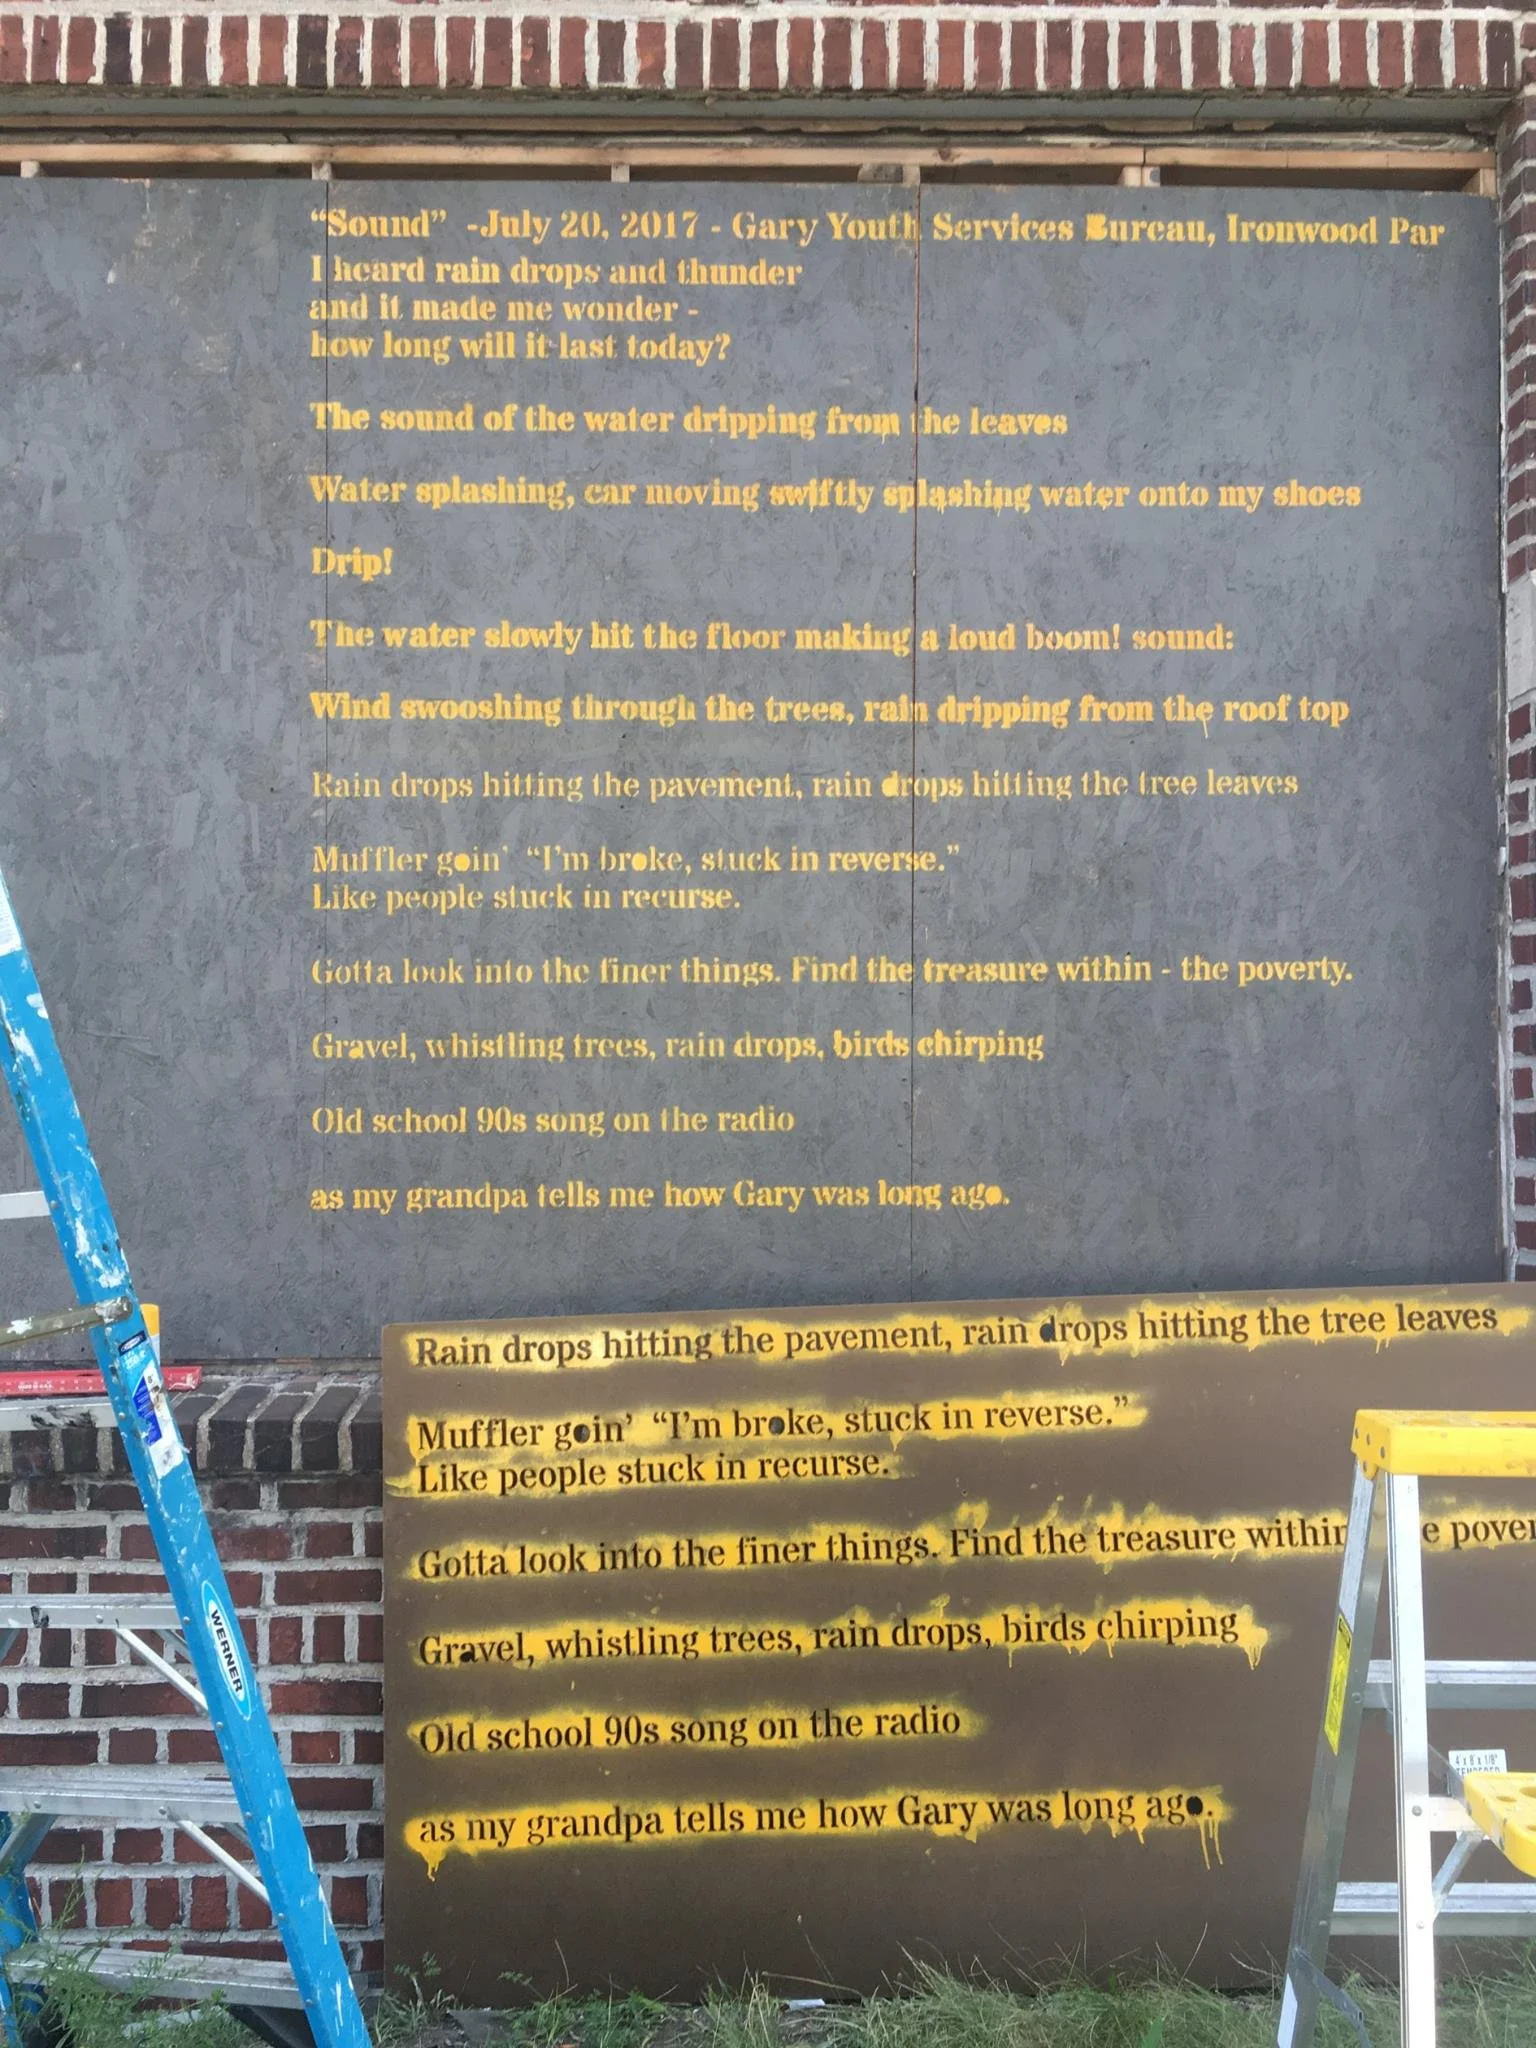 “Sound” -July 20, 2017 - Gary Youth Services Bureau, Ironwood Par
I heard rain drops and thunder
and it made me wonder -
how long will it last today?
The sound of the water dripping from the leaves
Water splashing, car moving swiftly splashing water onto my shoes
Drip!
The water slowly hit the floor making a loud boom! sound:
Wind swooshing through the trees, rain dripping from the roof top
Rain drops hitting the pavement, rain drops hitting the tree leaves
Muffler goin’ “I’m broke, stuck in reverse.”
Like people stuck in recurse.
Gotta look into the finer things. Find the treasure within - the poverty.
Gravel, whistling trees, rain drops, birds chirping
Old school 90s song on the radio
as my grandpa tells me how Gary was long ago.
Rain drops hitting the pavement, rain drops hitting the tree leaves
Muffler goin’ “I’m broke, stuck in reverse.”
Like people stuck in recurse.
Gotta look into the finer things. Find the treasure within e pover
Gravel, whistling trees, rain drops, birds chirping
Old school 90s song on the radio
as my grandpa tells me how Gary was long ago.
WERNER
4 x 8 x 1/8"
TEMPERED